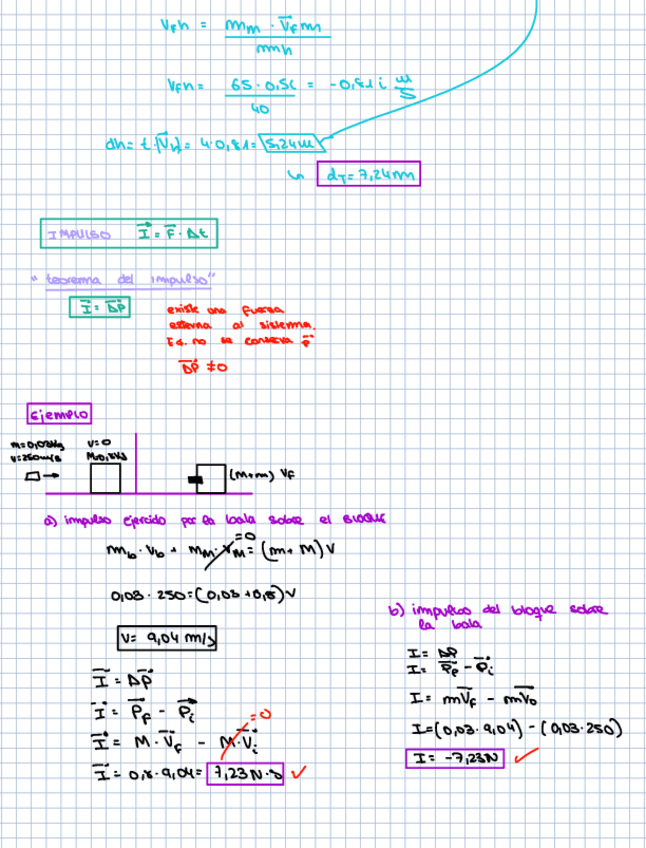 V_fh = m_m · V⃗_fm / m_h
V_fh = 65 · 0,5 / 40 = -0,81 i m/s
dh = t · |V⃗_h| = 4 · 0,81 = 3,24m
↳ d_T = 7,24m
IMPULSO I⃗ = F⃗ · Δt
"teorema del impulso"
I⃗ = ΔP⃗
existe una fuerza
externa al sistema.
no se conserva P⃗
ΔP⃗ ≠ 0
Ejemplo
m=0,03kg v=0
v=250m/s M=0,8kg
(M+m) V_F
a) impulso ejercido por la bala sobre el BLOQUE
m_b · V_b + m_M · V_M = (m + M) V
=0
0,03 · 250 = (0,03 + 0,8) V
V = 9,04 m/s
I⃗ = ΔP⃗
I⃗ = P⃗_F - P⃗_i
I⃗ = M · V⃗_F - M · V⃗_i
=0
I⃗ = 0,8 · 9,04 = 7,23 N·s ✓
b) impulso del bloque sobre
la bala
I = ΔP
I = P⃗_F - P⃗_i
I = mV⃗_F - mV⃗_0
I = (0,03 · 9,04) - (0,03 · 250)
I = -7,23N ✓